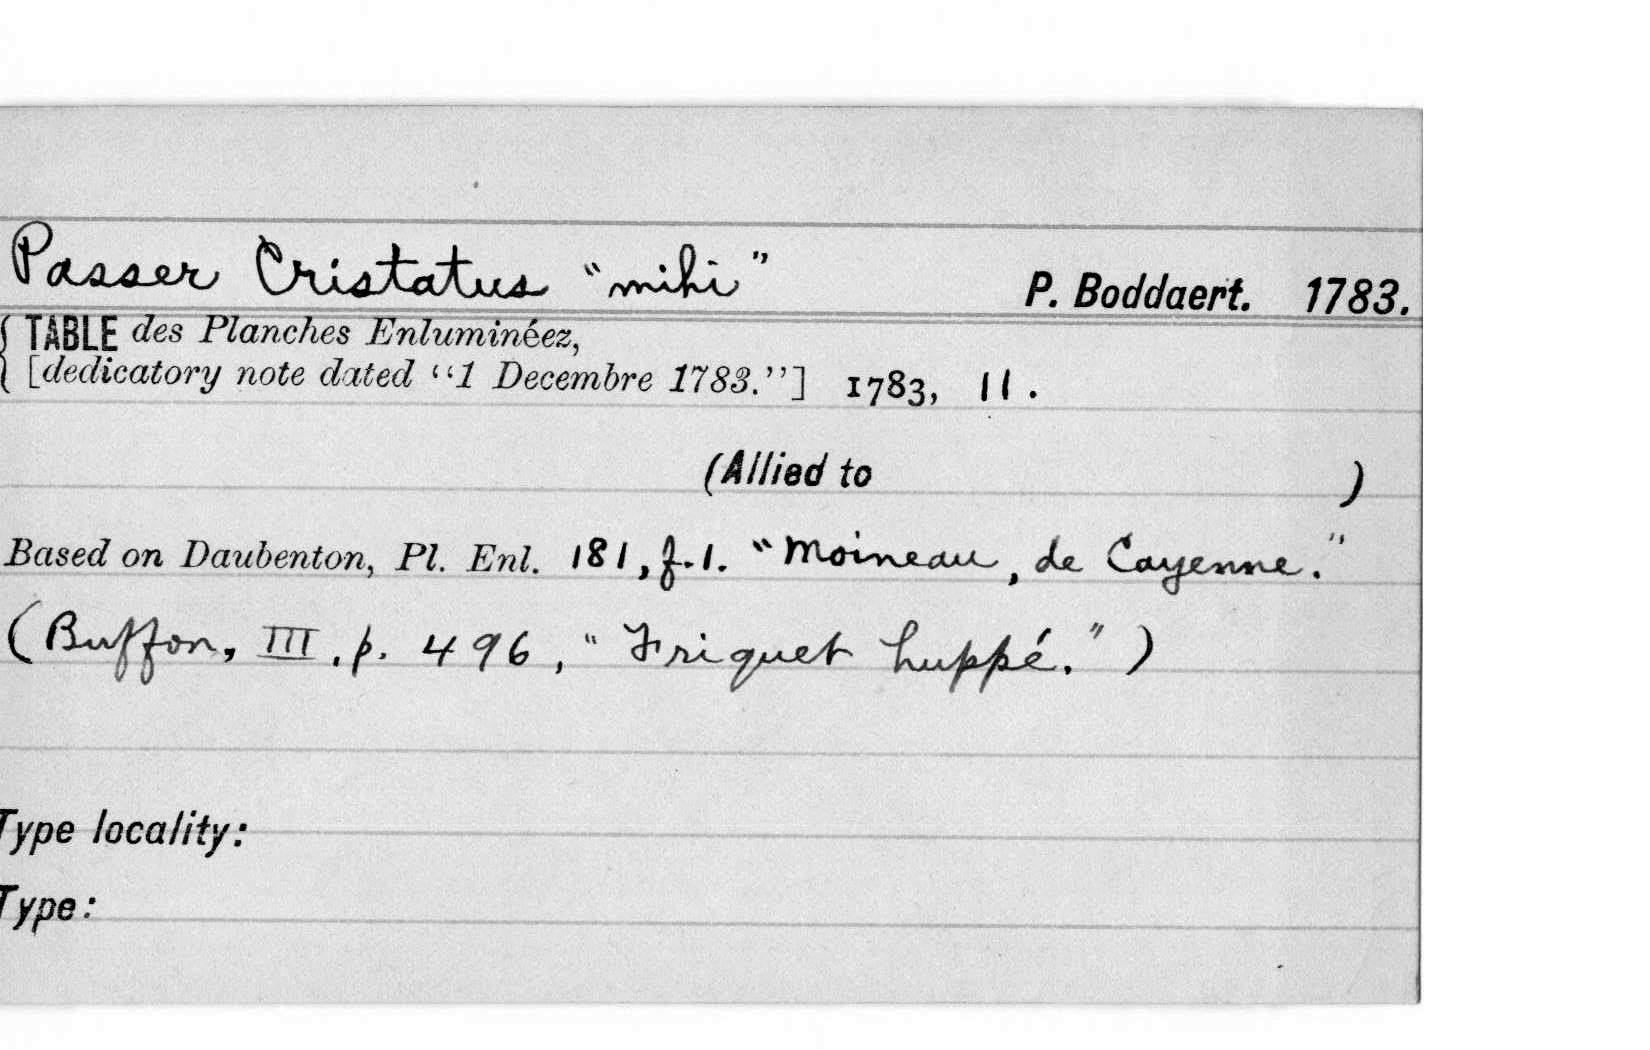 Passer Cristatus "mihi" P. Boddaert. 1783.
TABLE des Planches Enluminéez,
[dedicatory note dated "1 Decembre 1783."] 1783, 11.
(Allied to )
Based on Daubenton, Pl. Enl. 181, f.1. "Moineau, de Cayenne."
(Buffon, III. p. 496, "Friquet huppé.")
Type locality:
Type: